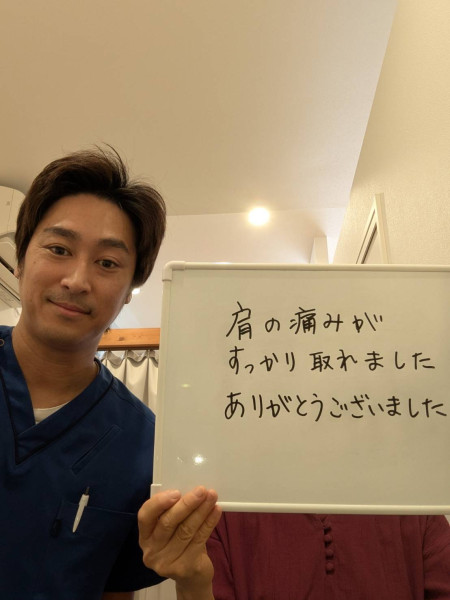 肩の痛みが
すっかり取れました
ありがとうございました